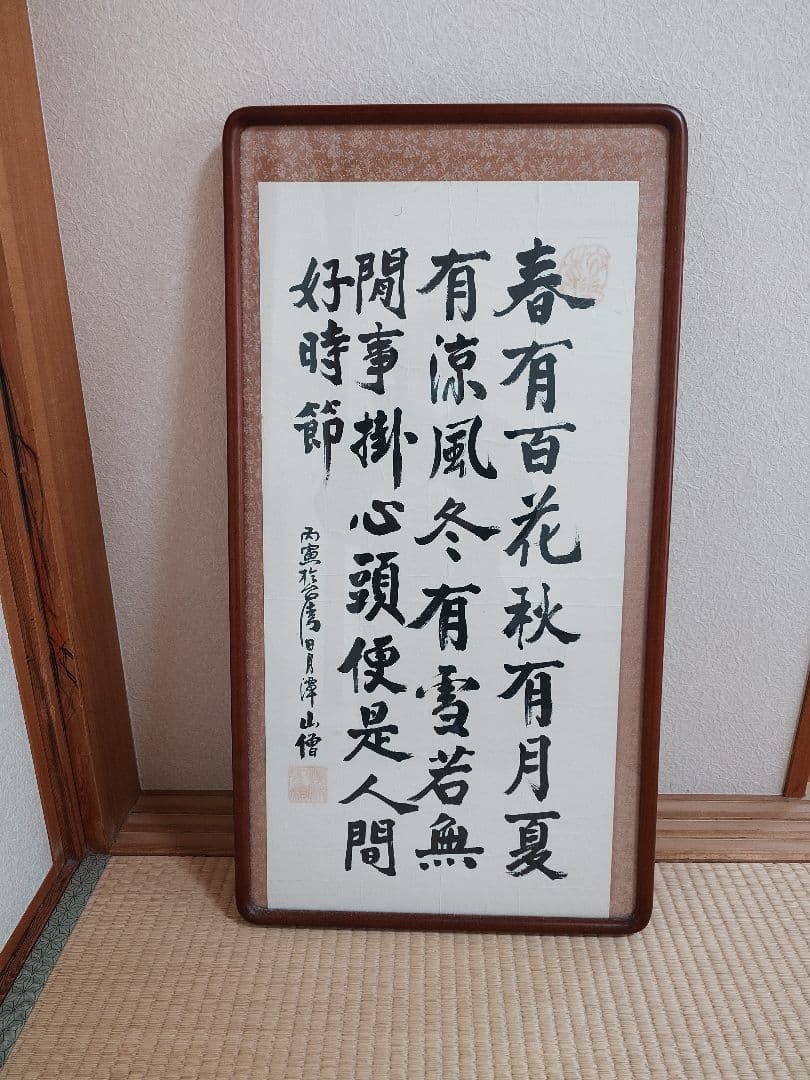 春有百花秋有月夏
有涼風冬有雪若無
閒事掛心頭便是人間
好時節
丙寅於台湾日月潭山僧